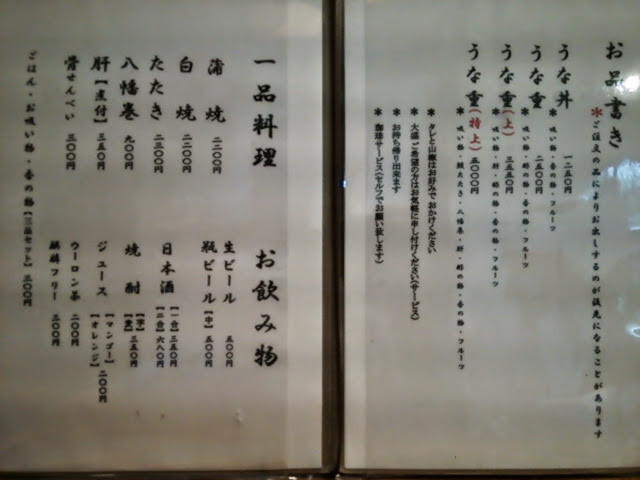 お品書き
＊ご注文の品によりお出しするのが後先になることがあります
うな丼 一二五〇円
＊吸い物・香の物・フルーツ
うな重 二五〇〇円
＊吸い物・酢の物・香の物・フルーツ
うな重(上) 三五五〇円
＊吸い物・肝・酢の物・香の物・フルーツ
うな重(特上) 五〇〇〇円
＊吸い物・鰻たたき・八幡巻・肝・酢の物・香の物・フルーツ
＊タレと山椒はお好みでおかけください
＊大盛ご希望の方はお気軽に申し付けください(サービス)
＊お持ち帰り出来ます
＊珈琲サービス(セルフでお願い致します)
一品料理
蒲焼 二二〇〇円
白焼 二二〇〇円
たたき 二三〇〇円
八幡巻 九〇〇円
肝【煮付】 三五〇円
骨せんべい 三〇〇円
ごはん・お吸い物・香の物【三品セット】 三〇〇円
お飲み物
生ビール 五〇〇円
瓶ビール【中】 五〇〇円
日本酒【一合】三五〇円
【二合】六八〇円
焼酎【芋】【麦】三五〇円
ジュース【マンゴー】【オレンジ】二〇〇円
ウーロン茶 二〇〇円
麒麟フリー 三〇〇円